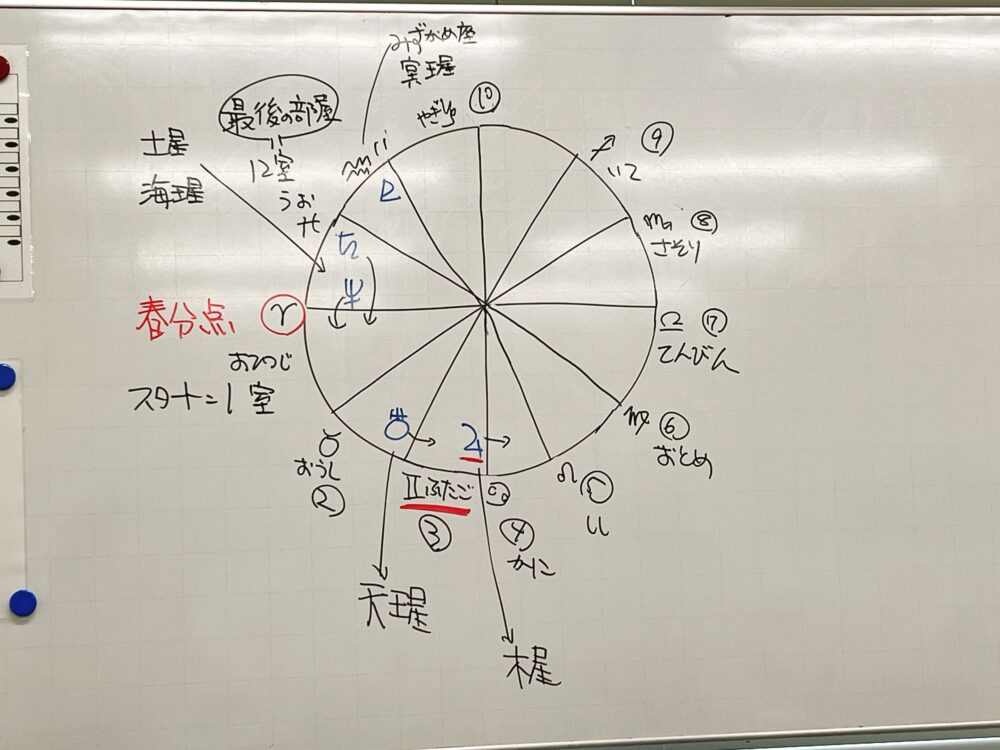 みずがめ座
冥王星
最後の部屋
12室
うお
土星
海王星
やぎ
⑩
♑
⑨
♐
いて
♏ ⑧
さそり
♇
♄
♆
春分点 ♈
おひつじ
スタート=1室
♎ ⑦
てんびん
♍ ⑥
おとめ
♉
おうし
②
♅
♃
♊ふたご
③
♋
④
かに
♌ ⑤
しし
天王星
木星